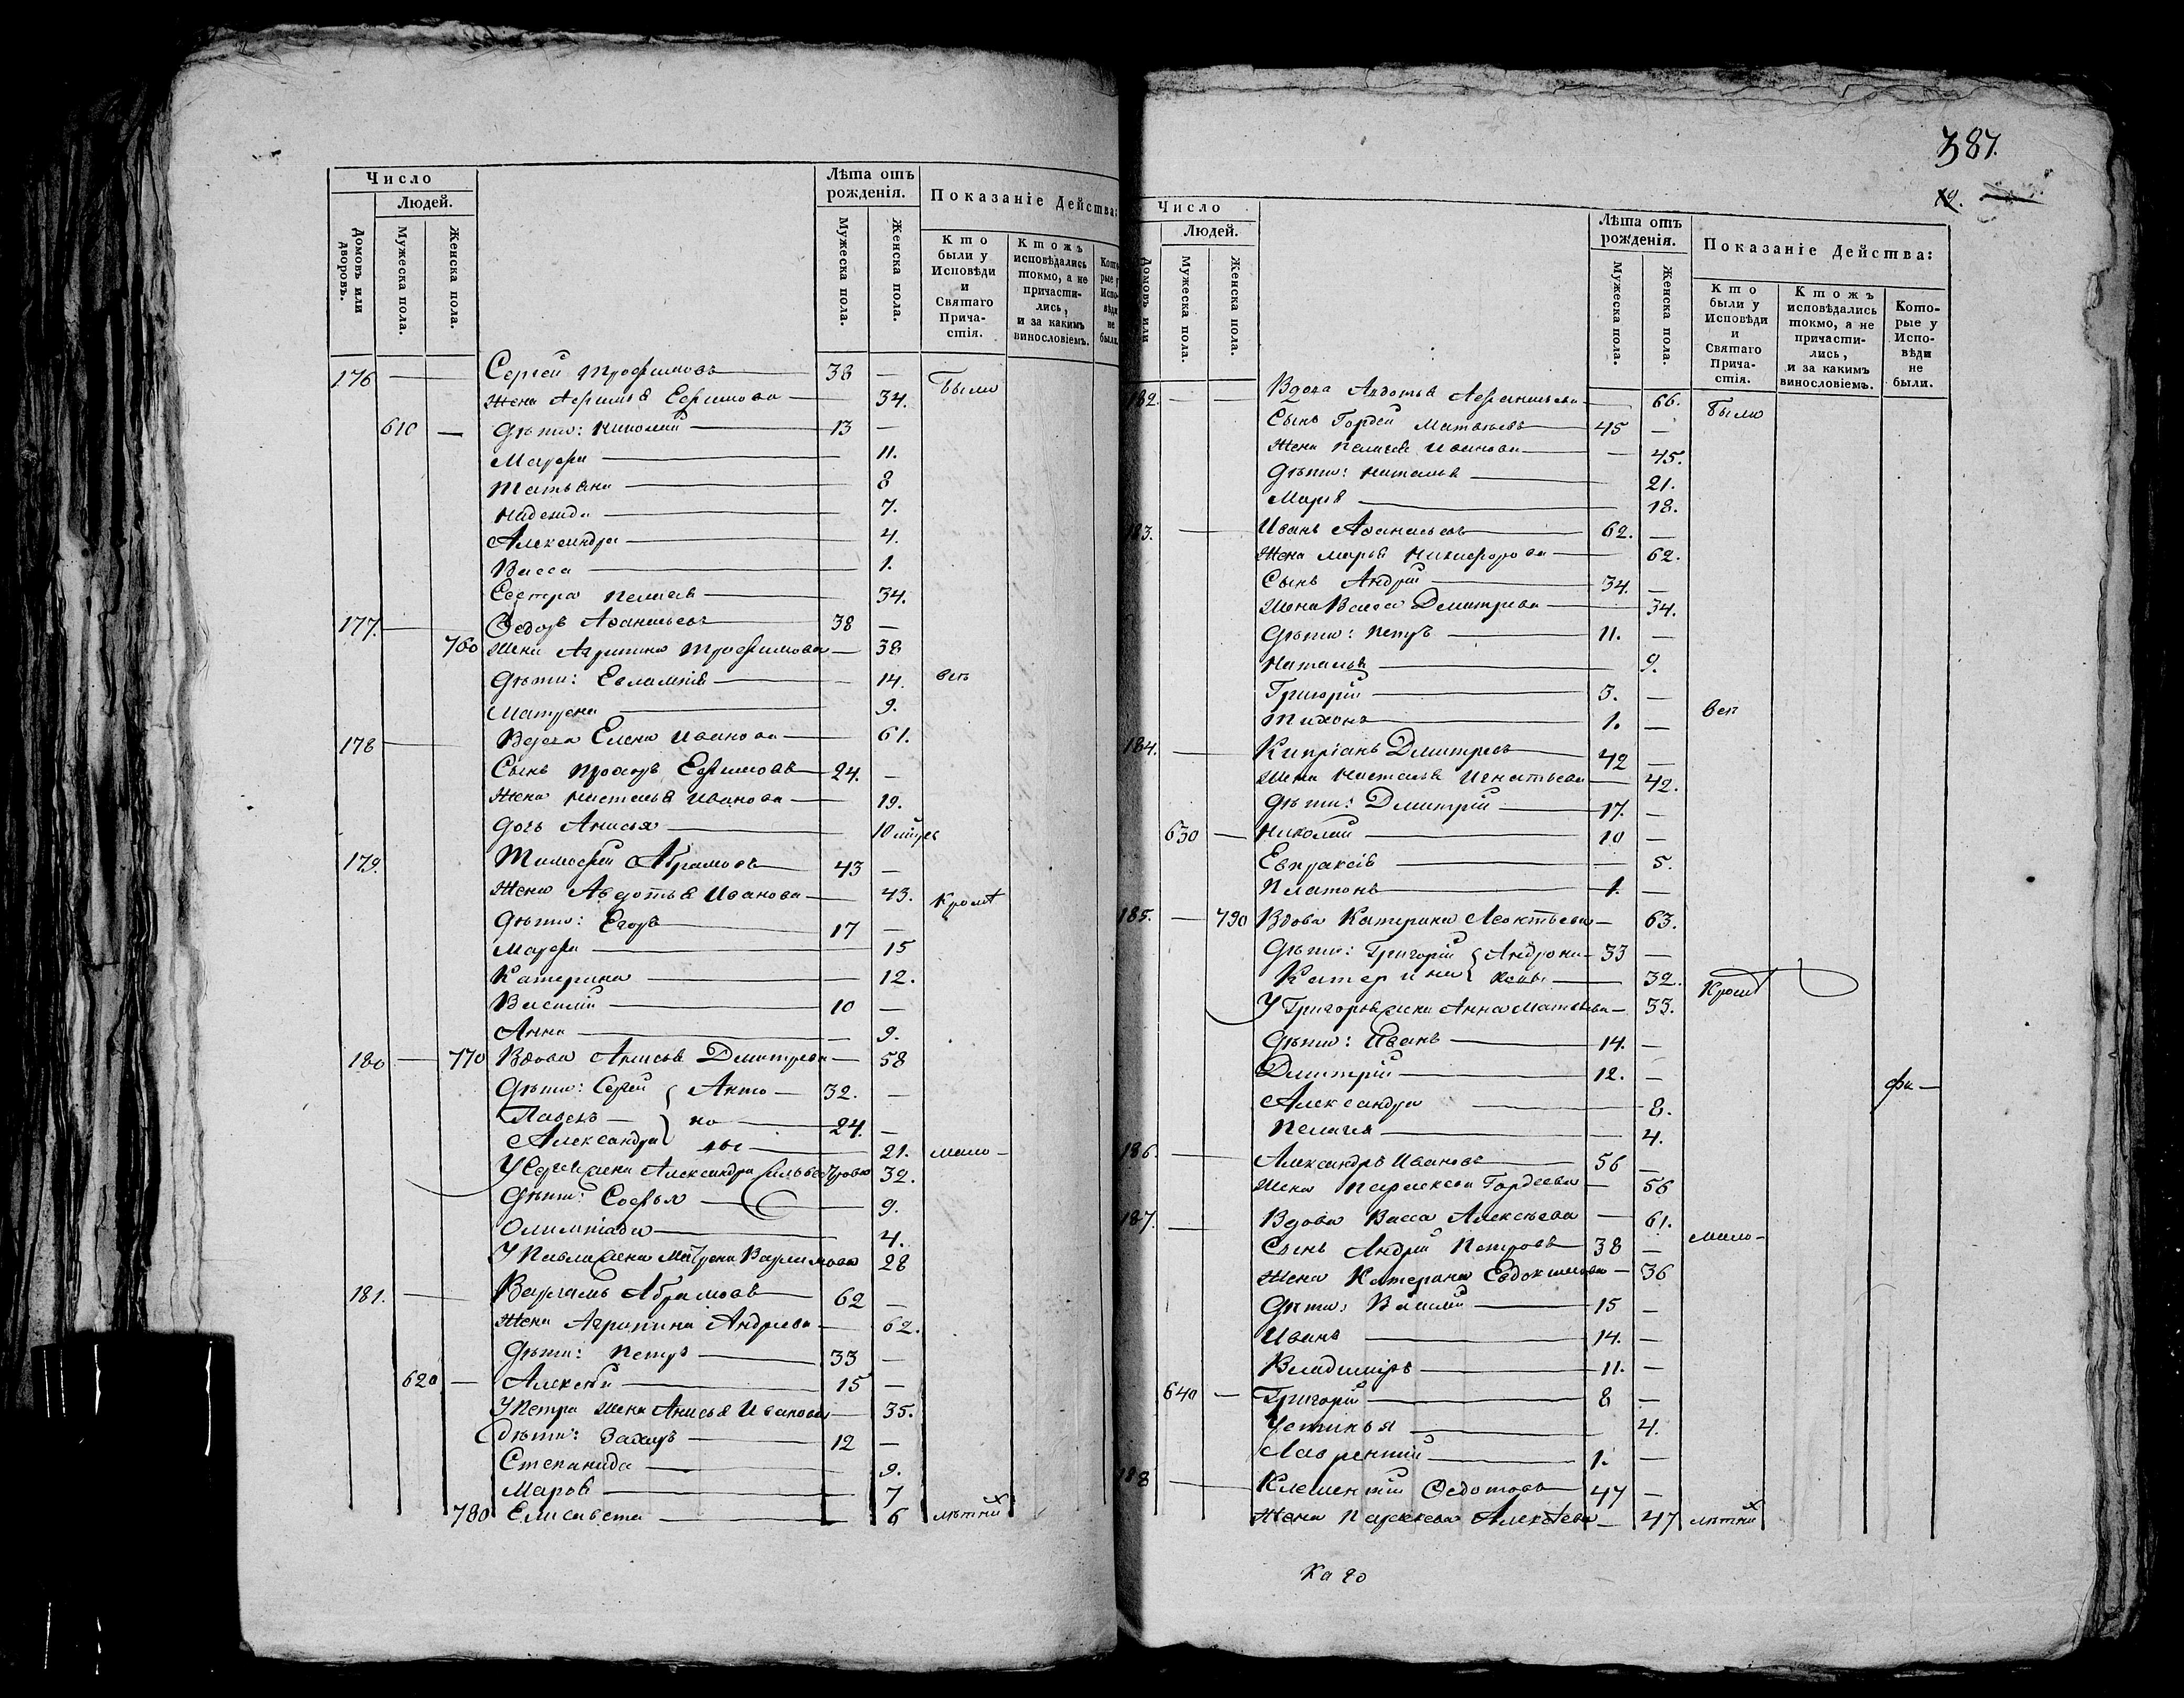 Число
Людей.
Домовъ или дворовъ.
Мужеска пола.
Женска пола.
Лѣта отъ рожденія.
Мужеска пола.
Женска пола.
Показаніе Действа:
Кто были у Исповѣди и Святаго Прича-стія.
Ктожъ исповѣдались токмо, а не причасти-лись, и за какимъ винословіемъ.
Кото рые у Испо вѣди не были.
176 — Сергей Трофимовъ — 38 — Были
Жена Афимья Ефимова — 34.
610 — Дѣти: Николай — 13 —
Марфа — 11.
Татьяна — 8
Надежда — 7.
Александра — 4.
Васса — 1.
Сестра Пелагея — 34.
177. — Ѳедоръ Аѳанасьевъ — 38 —
760 Жена Агрипина Трофимова — 38
Дѣти: Евлампія — 14. всѣ
Матрена — 9.
178 — Вдова Елена Иванова — 61.
Сынъ Прохоръ Ефимовъ — 24. —
Жена Наталья Иванова — 19.
Дочь Анисья — 10
179. Тимофей Абрамовъ — 43 —
Жена Авдотья Иванова — 43. кромѣ
Дѣти: Егоръ — 17 —
Марфа — 15
Катерина — 12.
Василій — 10 —
Анна — 9.
180 — 770 Вдова Анисья Дмитрева — 58
Дѣти: Сергей { Анто — 32. —
Павелъ — } но — 24. —
Александра } вы — 21. мало-
У Сергея жена Александра Сильвестрова 32.
Дѣти: Софья — 9.
Олимпіада — 4.
У Павла жена Матрена Варламова 28
181. — Варламъ Абрамовъ — 62 —
Жена Агрипина Андреева — 62.
Дѣти: Петръ — 33 —
620 — Алексѣй — 15 —
У Петра жена Анисья Иванова — 35.
Дѣти: Захаръ — 12 —
Степанида — 9.
Марья — 7
780 Елисавета — 6 лѣтних
387.
19.
Число
Людей.
Домовъ или
Мужеска пола.
Женска пола.
Лѣта отъ рожденія.
Мужеска пола.
Женска пола.
Показаніе Действа:
Кто были у Исповѣди и Святаго Прича-стія.
Ктожъ исповѣдались токмо, а не причасти-лись, и за какимъ винословіемъ.
Кото-рые у Испо-вѣди не были.
182. — — Вдова Авдотья Афанасьева — 66. Были
Сынъ Гордей Матвѣевъ — 45 —
Жена Пелагея Иванова — 45.
Дѣти: Наталья — 21.
Марья — 18.
183. — Иванъ Аѳанасьевъ — 62. —
Жена Марья Никифорова — 62.
Сынъ Андрей — 34. —
Жена Васса Дмитрева — 34.
Дѣти: Петръ — 11. —
Наталья — 9.
Григорій — 3. —
Тихонъ — 1. — всѣ
184. — Кипріанъ Дмитревъ — 42 —
Жена Наталья Игнатьева — 42.
Дѣти: Дмитрій — 17. —
630 — Николай — 10 —
Евпраксія — 5.
Платонъ — 1. —
185. — 790 Вдова Катерина Леонтьева — 63.
Дѣти: Григорій { Андрони- 33 —
Катерина { ковы — 32. Кромѣ
У Григорья жена Анна Матвѣева — 33.
Дѣти: Иванъ — 14. —
Дмитрій — 12. —
Александра — 8.
Пелагея — 4.
186. — Александръ Ивановъ — 56 —
Жена Парасковья Гордеева — 56
187. — Вдова Васса Алексѣева — 61. мало-
Сынъ Андрей Петровъ — 38 —
Жена Катерина Евдокимова — 36
Дѣти: Василій — 15 —
Иванъ — 14. —
Владиміръ — 11. —
640 — Григорій — 8 —
Устинья — 4.
Лаврентій — 1. —
188 — Клементій Ѳедотовъ — 47 —
Жена Парасковья Алексѣева — 47 лѣтних